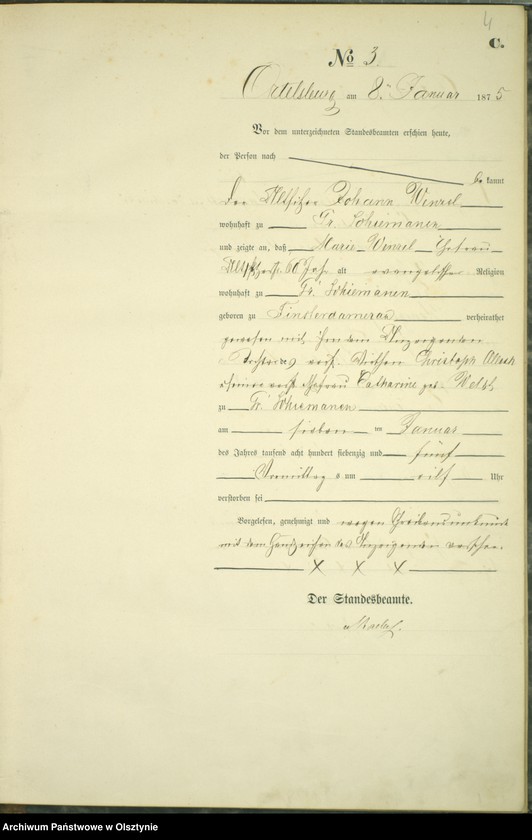 4
C.
No 3.
Ortelsburg am 8. Januar 1875
Vor dem unterzeichneten Standesbeamten erschien heute,
der Person nach
be kannt
der Altsitzer Johann Wenzel
wohnhaft zu Gr. Schiemanen
und zeigte an, daß Marie Wenzel Ehefrau
60 Jahr alt evangelischer Religion
wohnhaft zu Gr. Schiemanen
geboren zu Finsterdamerau verheirathet
gewesen mit ihm dem Anzeigenden
Tochter des Christoph
Ehefrau Catharine geb.
zu Gr. Schiemanen
am sieben ten Januar
des Jahres tausend acht hundert siebenzig und fünf
Vormittag s um eilf Uhr
verstorben sei
Vorgelesen, genehmigt und wegen Schreibensunkunde
mit dem Handzeichen des Anzeigenden versehen.
X X X
Der Standesbeamte.
Archiwum Państwowe w Olsztynie